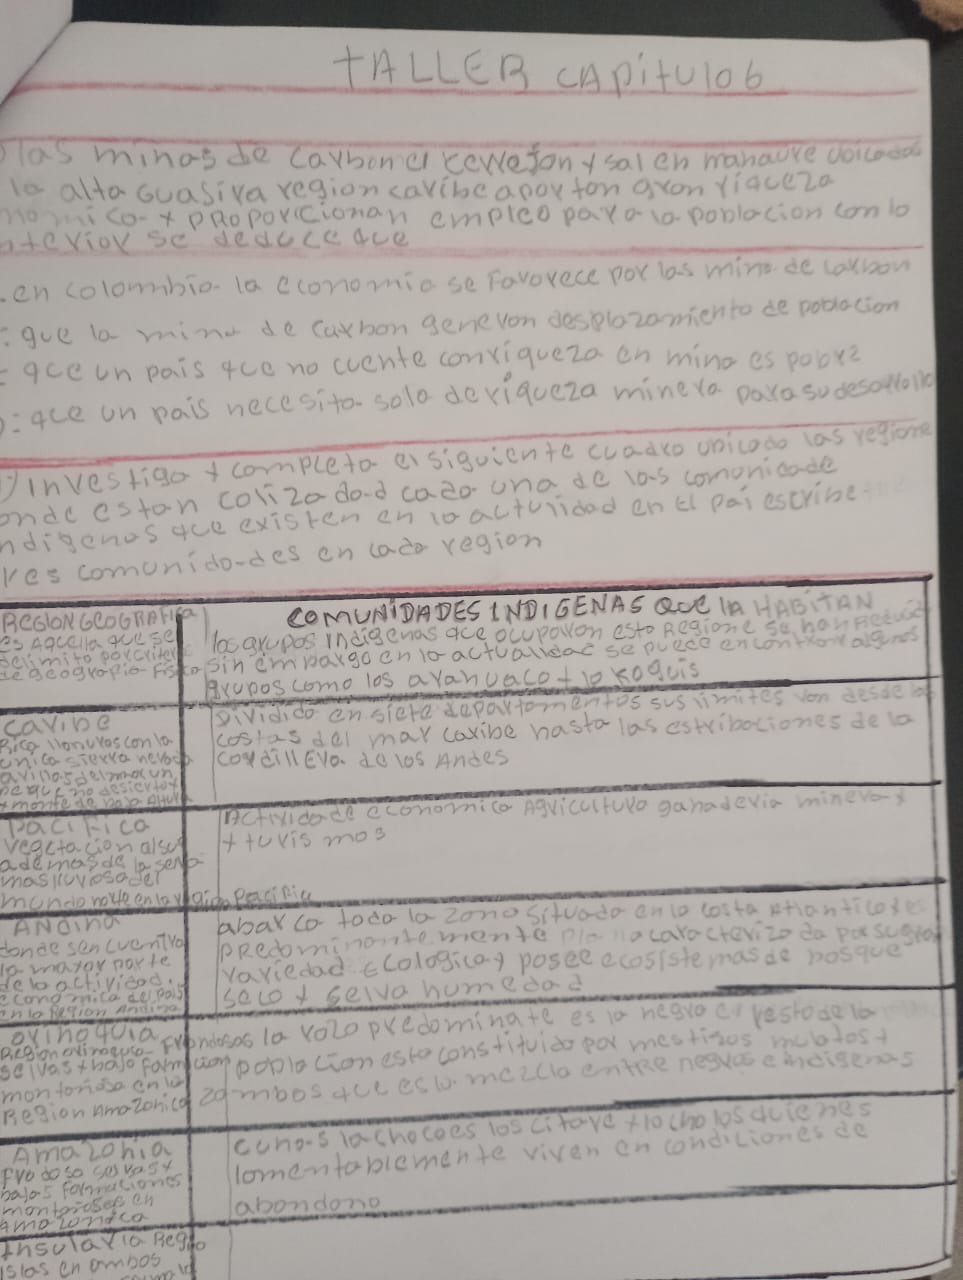 TALLER CAPitulo 6
las minas de carbon el cerrejon y sal en manaure ubicadas
la alta Guasira region caribe aportan gran riqueza
nomico y PROPORCIONAN empleo para la poblacion con lo
nterior se deduce que
en colombia la economia se Favorece por las mina de carbon
: que la mina de carbon generon desplazamiento de poblacion
: qce un pais qce no cuente con riqueza en mina es pobre
: qce un pais necesita solo de riqueza minera para su desarrollo
) investigo y completa el siguiente cuadro ubicado las regione
onde estan coliza dod cada una de las comunicade
ndigenas qce existen en la actulidad en El pai escribe
res comunidades en cada region
REGION GEOGRAFICA
es AqcellA que se
delimita por criter
de geografia Fisica
COMUNIDADES INDIGENAS QUE lA HABITAN
los grupos indigenas qce ocupavon esta Regione se han Reducid
sin embargo en la actualidad se puede encontrar algunos
grupos como los arahuaco y lo KOGuis
caribe
Rica llanuras con la
unica sierra nevada
a orillas del mar un
pequeño desierto y
monte de baja Altura
Dividido en siete departamentos sus limites von desde las
costas del mar caribe hasta las estribaciones de la
cordillEra de los Andes
pacifica
vegetacion a su
ademas de la selva
mas lluviosa del
mundo
Actividade economica Agricultura ganaderia minera y
y turis mos
ANDina
donde se encuentra
la mayor parte
de la actividad
economica del pais
en la Region Andina
abarca toda la zona situada en la costa Atlantico es
predominantemente plana caracteriza da por su gran
variedad Ecologica y posee ecosistemas de bosque
seco y selva humedad
orinoquia
selvas y baja formacion
montañosa en la
Region Amazonica
Frondosas la raza predominate es la negra el resto de la
poblacion esta constituido por mestizos mulatos y
zambos qce es la mezcla entre negros e indigenas
Amazonia
frodoso selvas y
bajas formaciones
montañosas en
Amazonica
cunas la chocoes los citara y lo cholos quienes
lamentablemente viven en condiciones de
abondono
Insular la Regio
islas en ambos